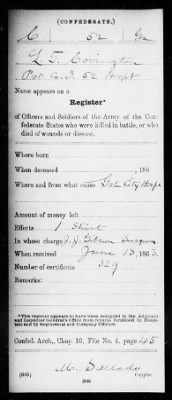 (CONFEDERATE.)
C 52 Ga
L. T. Covington
Pvt C. I. 52 Regt
Name appears on a
Register*
of Officers and Soldiers of the Army of the Con-
federate States who were killed in battle, or who
died of wounds or disease.
Where born
When deceased , 186
Where and from what cause Gate City Hosp
Amount of money left
Effects 1 Shirt
In whose charge J. J. Gibson Surgeon
When received June 13, 1863.
Number of certificates 329
Remarks:
*This register appears to have been compiled in the Adjutant
and Inspector General's Office from returns furnished by Hospi-
tals and by Regimental and Company Officers.
Confed. Arch., Chap. 10, File No. 4, page 45
(635)
Copyist.